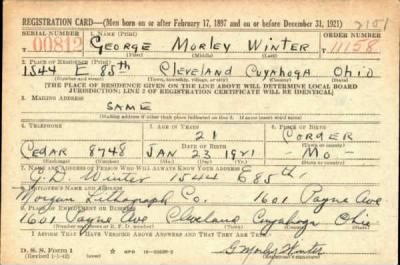 REGISTRATION CARD—(Men born on or after February 17, 1897 and on or before December 31, 1921)
SERIAL NUMBER 1. NAME (Print) ORDER NUMBER
00812 GEORGE MORLEY WINTER 11158
2. PLACE OF RESIDENCE (Print)
1544 E 85th CLEVELAND CUYAHOGA OHIO
(Number and street) (Town, township, village, or city) (County) (State)
[THE PLACE OF RESIDENCE GIVEN ON THE LINE ABOVE WILL DETERMINE LOCAL BOARD
JURISDICTION; LINE 2 OF REGISTRATION CERTIFICATE WILL BE IDENTICAL]
3. MAILING ADDRESS
SAME
[Mailing address if other than place indicated on line 2. If same insert word same]
4. TELEPHONE 5. AGE IN YEARS 6. PLACE OF BIRTH
21
DATE OF BIRTH
CEDAR 8748 JAN 23 1921 MO
(Exchange) (Number) (Mo.) (Day) (Yr.) (State or country)
7. NAME AND ADDRESS OF PERSON WHO WILL ALWAYS KNOW YOUR ADDRESS
G. D. Winter 1544 E 85th
8. EMPLOYER'S NAME AND ADDRESS
Morgan Lithograph Co. 1601 Payne Ave
9. PLACE OF EMPLOYMENT OR BUSINESS
1601 Payne Ave Cleveland Cuyahoga Ohio
(Number and street or R. F. D. number) (Town) (County) (State)
I AFFIRM THAT I HAVE VERIFIED ABOVE ANSWERS AND THAT THEY ARE TRUE.
D. S. S. Form 1
(Revised 1-1-42) GPO G Morley Winter